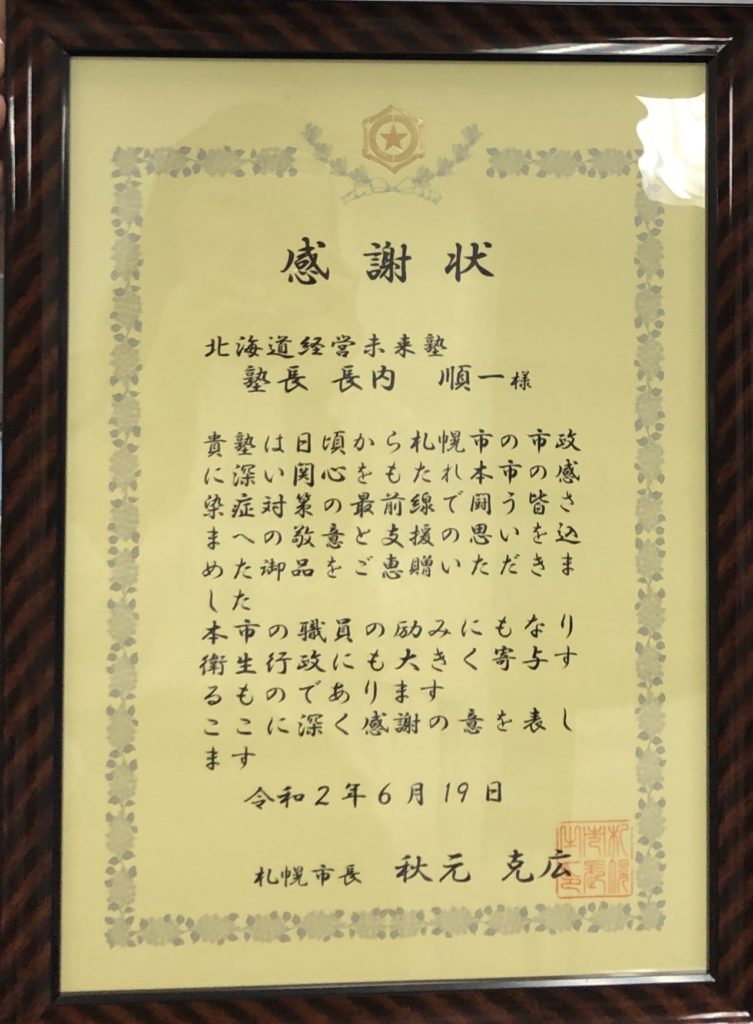 感謝状
北海道経営未来塾
塾長 長内 順一様
貴塾は日頃から札幌市の市政
に深い関心をもたれ本市の感
染症対策の最前線で闘う皆さ
まへの敬意と支援の思いを込
めた御品をご恵贈いただきま
した
本市の職員の励みにもなり
衛生行政にも大きく寄与す
るものであります
ここに深く感謝の意を表し
ます
令和2年6月19日
札幌市長 秋元 克広